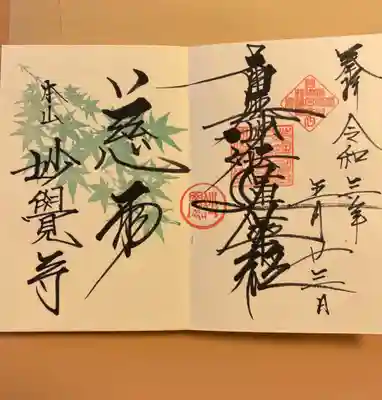 奉拝 令和三年 五月廿三日
南無妙法蓮華経
慈雨
本山 妙覺寺